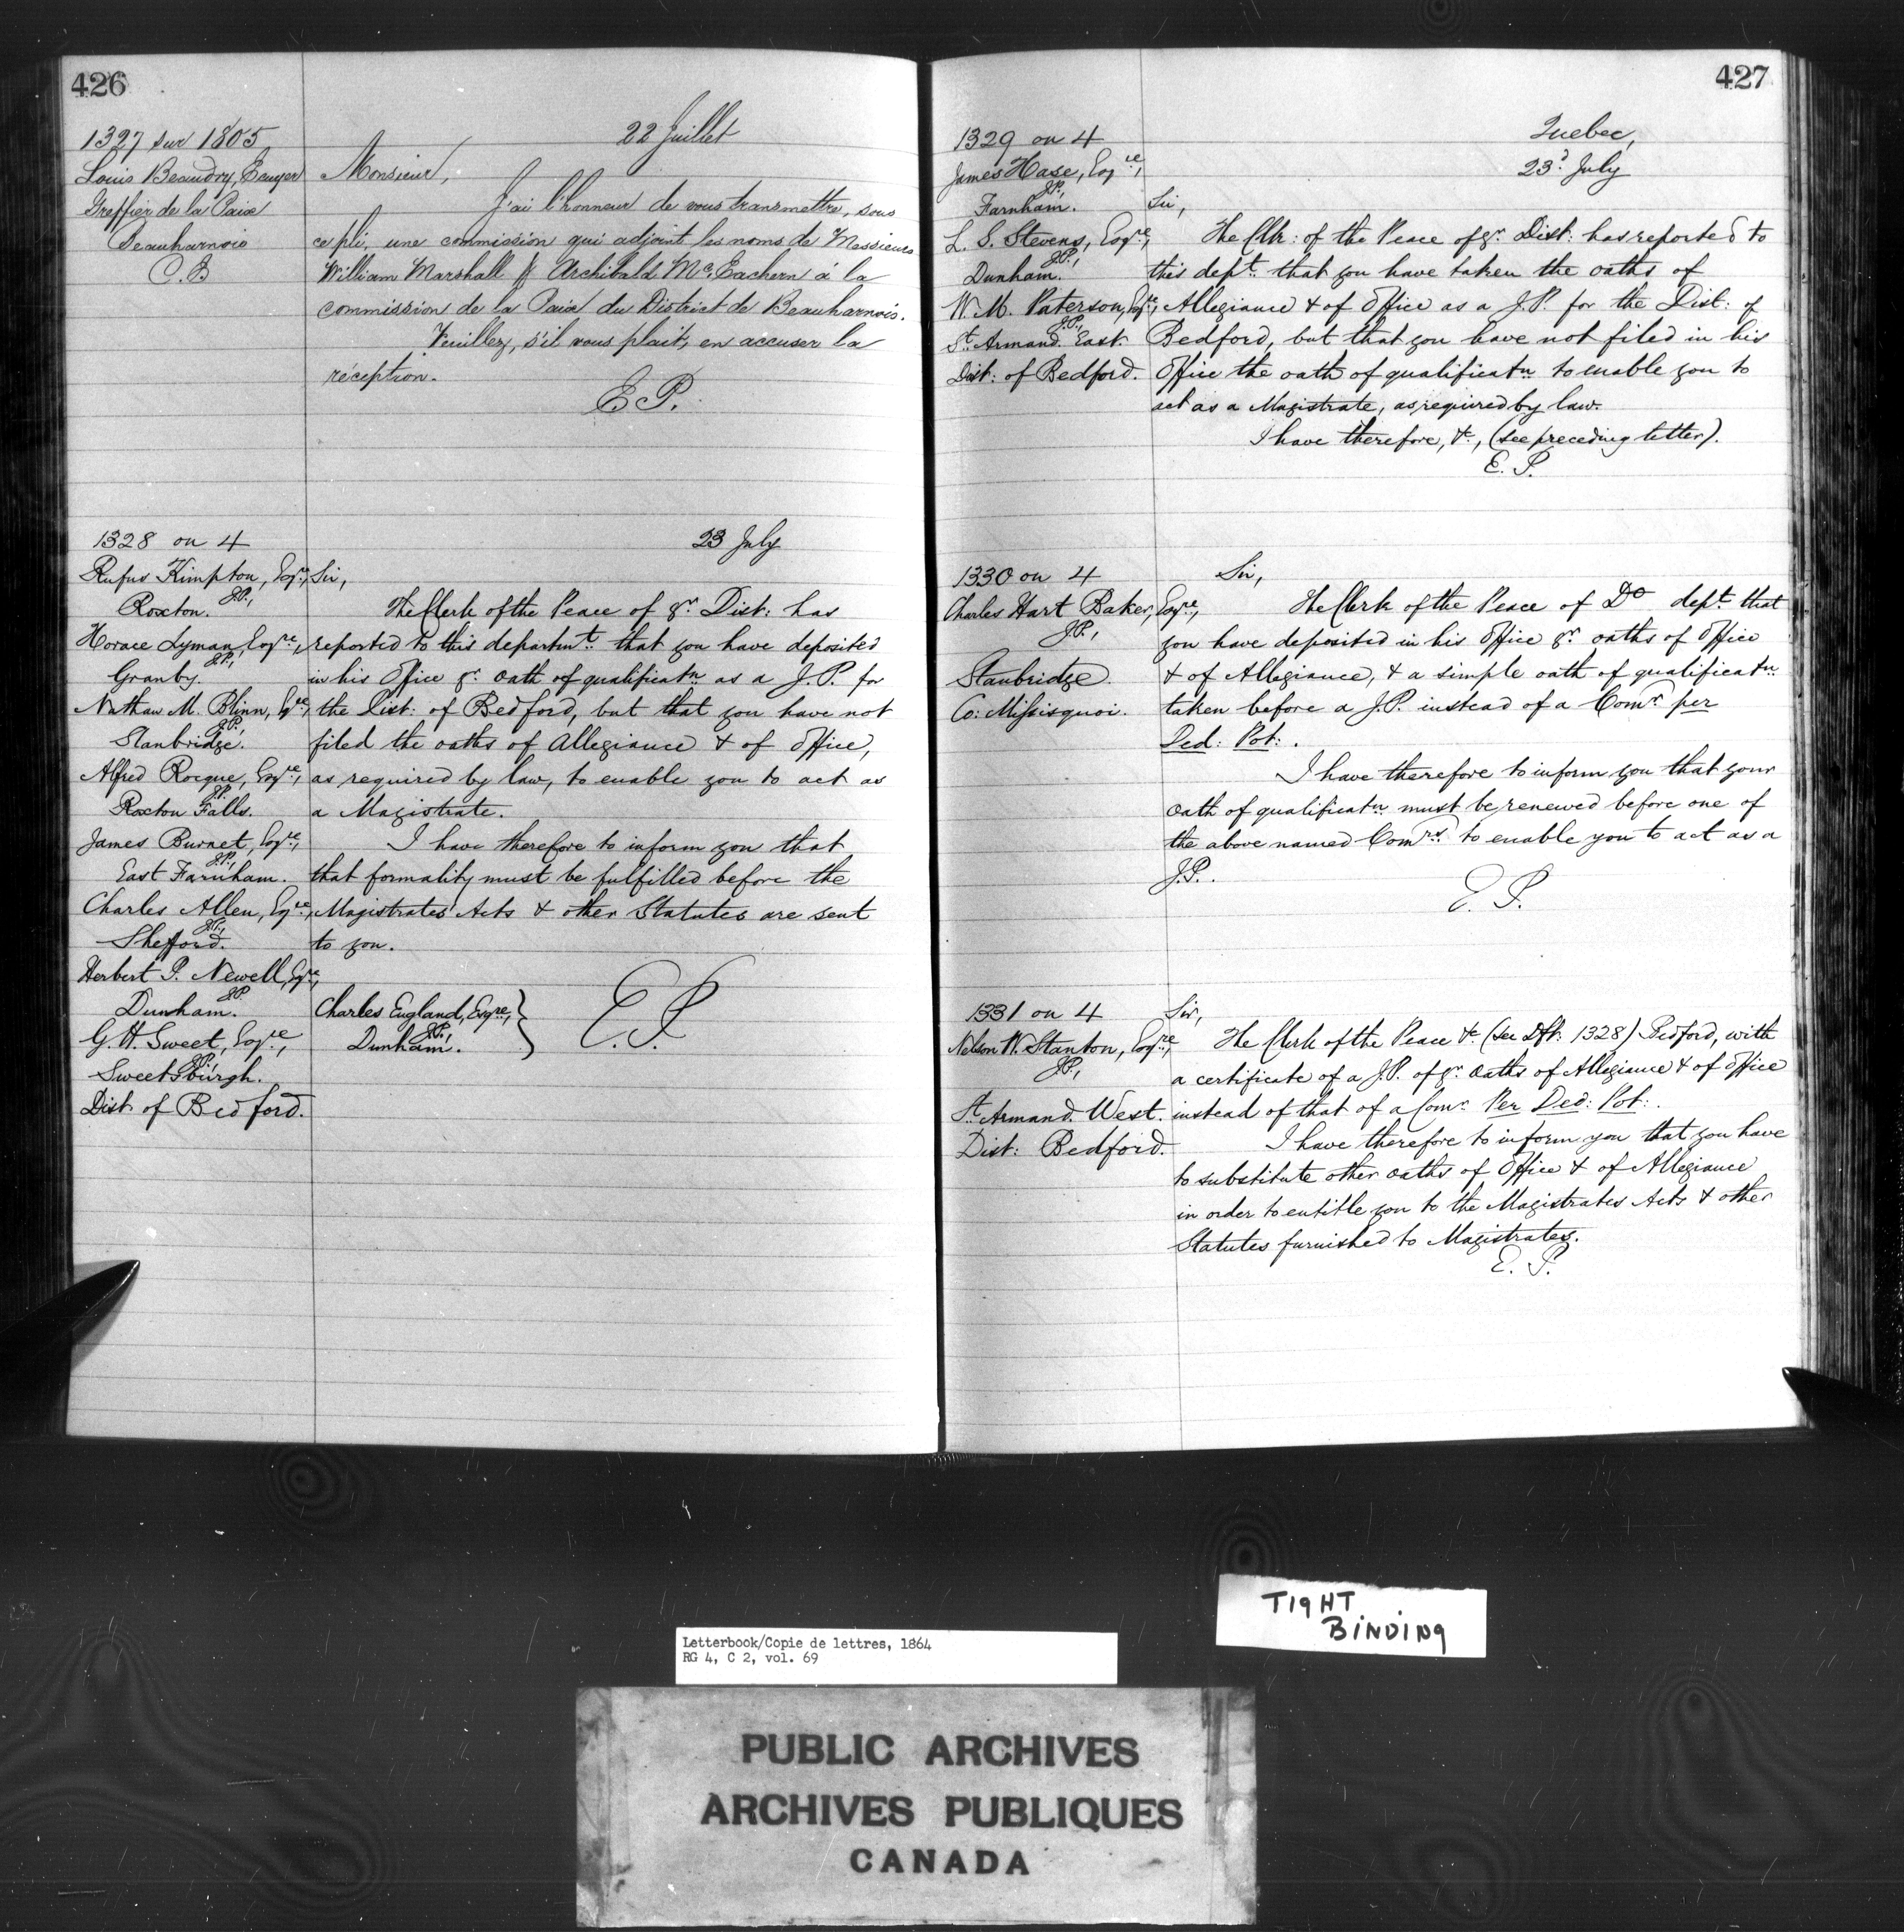 426
1327 sur 1805
22 Juillet
Louis Beaudry, Ecuyer
Greffier de la Paix
Beauharnois
C. B
Monsieur,
J'ai l'honneur de vous transmettre, sous
ce pli, une commission qui adjoint les noms de Messieurs
William Marshall & Archibald Mc.Eachern à la
commission de la Paix du District de Beauharnois.
Veuillez, s'il vous plait, en accuser la
réception.
E P.
1328 on 4
23 July
Rufus Kimpton, Esqre,
J.P.,
Roxton.
Horace Lyman, Esqre,
J.P.,
Granby.
Nathan M. Blinn, Esqre,
J.P.,
Stanbridge.
Alfred Rocque, Esqre,
J.P.
Roxton Falls.
James Burnet, Esqre,
J.P.,
East Farnham.
Charles Allen, Esqre,
J.P.,
Shefford.
Herbert P. Newell, Esqre,
J.P.
Dunham.
G. H. Sweet, Esqre,
J.P.,
Sweetsburgh.
Dist. of Bedford.
Charles England, Esqre,
J.P.,
Dunham.
Sir,
The Clerk of the Peace of yr. Dist: has
reported to this departmt. that you have deposited
in his Office yr. oath of qualificatn as a J.P. for
the Dist: of Bedford, but that you have not
filed the oaths of Allegiance & of Office,
as required by law, to enable you to act as
a Magistrate.
I have therefore to inform you that
that formality must be fulfilled before the
Magistrates' Acts & other Statutes are sent
to you.
E. P.
427
1329 on 4
Quebec,
23d July
James Hase, Esqre,
J.P.,
Farnham.
L. S. Stevens, Esqre,
J.P.,
Dunham.
W. M. Paterson, Esqre,
J.P.,
St. Armand East.
Dist: of Bedford.
Sir,
The Clk: of the Peace of yr. Dist: has reported to
this dept. that you have taken the oaths of
Allegiance & of Office as a J.P. for the Dist: of
Bedford, but that you have not filed in his
Office the oath of qualificatn to enable you to
act as a Magistrate, as required by law.
I have therefore, &c, (see preceding letter).
E. P.
1330 on 4
Charles Hart Baker, Esqre,
J.P.,
Stanbridge.
Co: Missisquoi.
Sir,
The Clerk of the Peace of Do dept. that
you have deposited in his Office yr. oaths of Office
& of Allegiance, & a simple oath of qualificatn
taken before a J.P. instead of a Comr. per
Ded: Pot: .
I have therefore to inform you that your
oath of qualificatn must be renewed before one of
the above named Comrs. to enable you to act as a
J.P. .
E. P.
1331 on 4
Nelson W. Stanton, Esqre,
J.P.,
St. Armand West.
Dist: Bedford.
Sir,
The Clerk of the Peace &c (see Dft: 1328) Bedford, with
a certificate of a J.P. of yr. oaths of Allegiance & of Office
instead of that of a Comr. Per Ded: Pot: .
I have therefore to inform you that you have
to substitute other oaths of Office & of Allegiance
in order to entitle you to the Magistrates Acts & other
Statutes furnished to Magistrates.
E. P.
TIGHT
BINDING
Letterbook/Copie de lettres, 1864
RG 4, C 2, vol. 69
PUBLIC ARCHIVES
ARCHIVES PUBLIQUES
CANADA